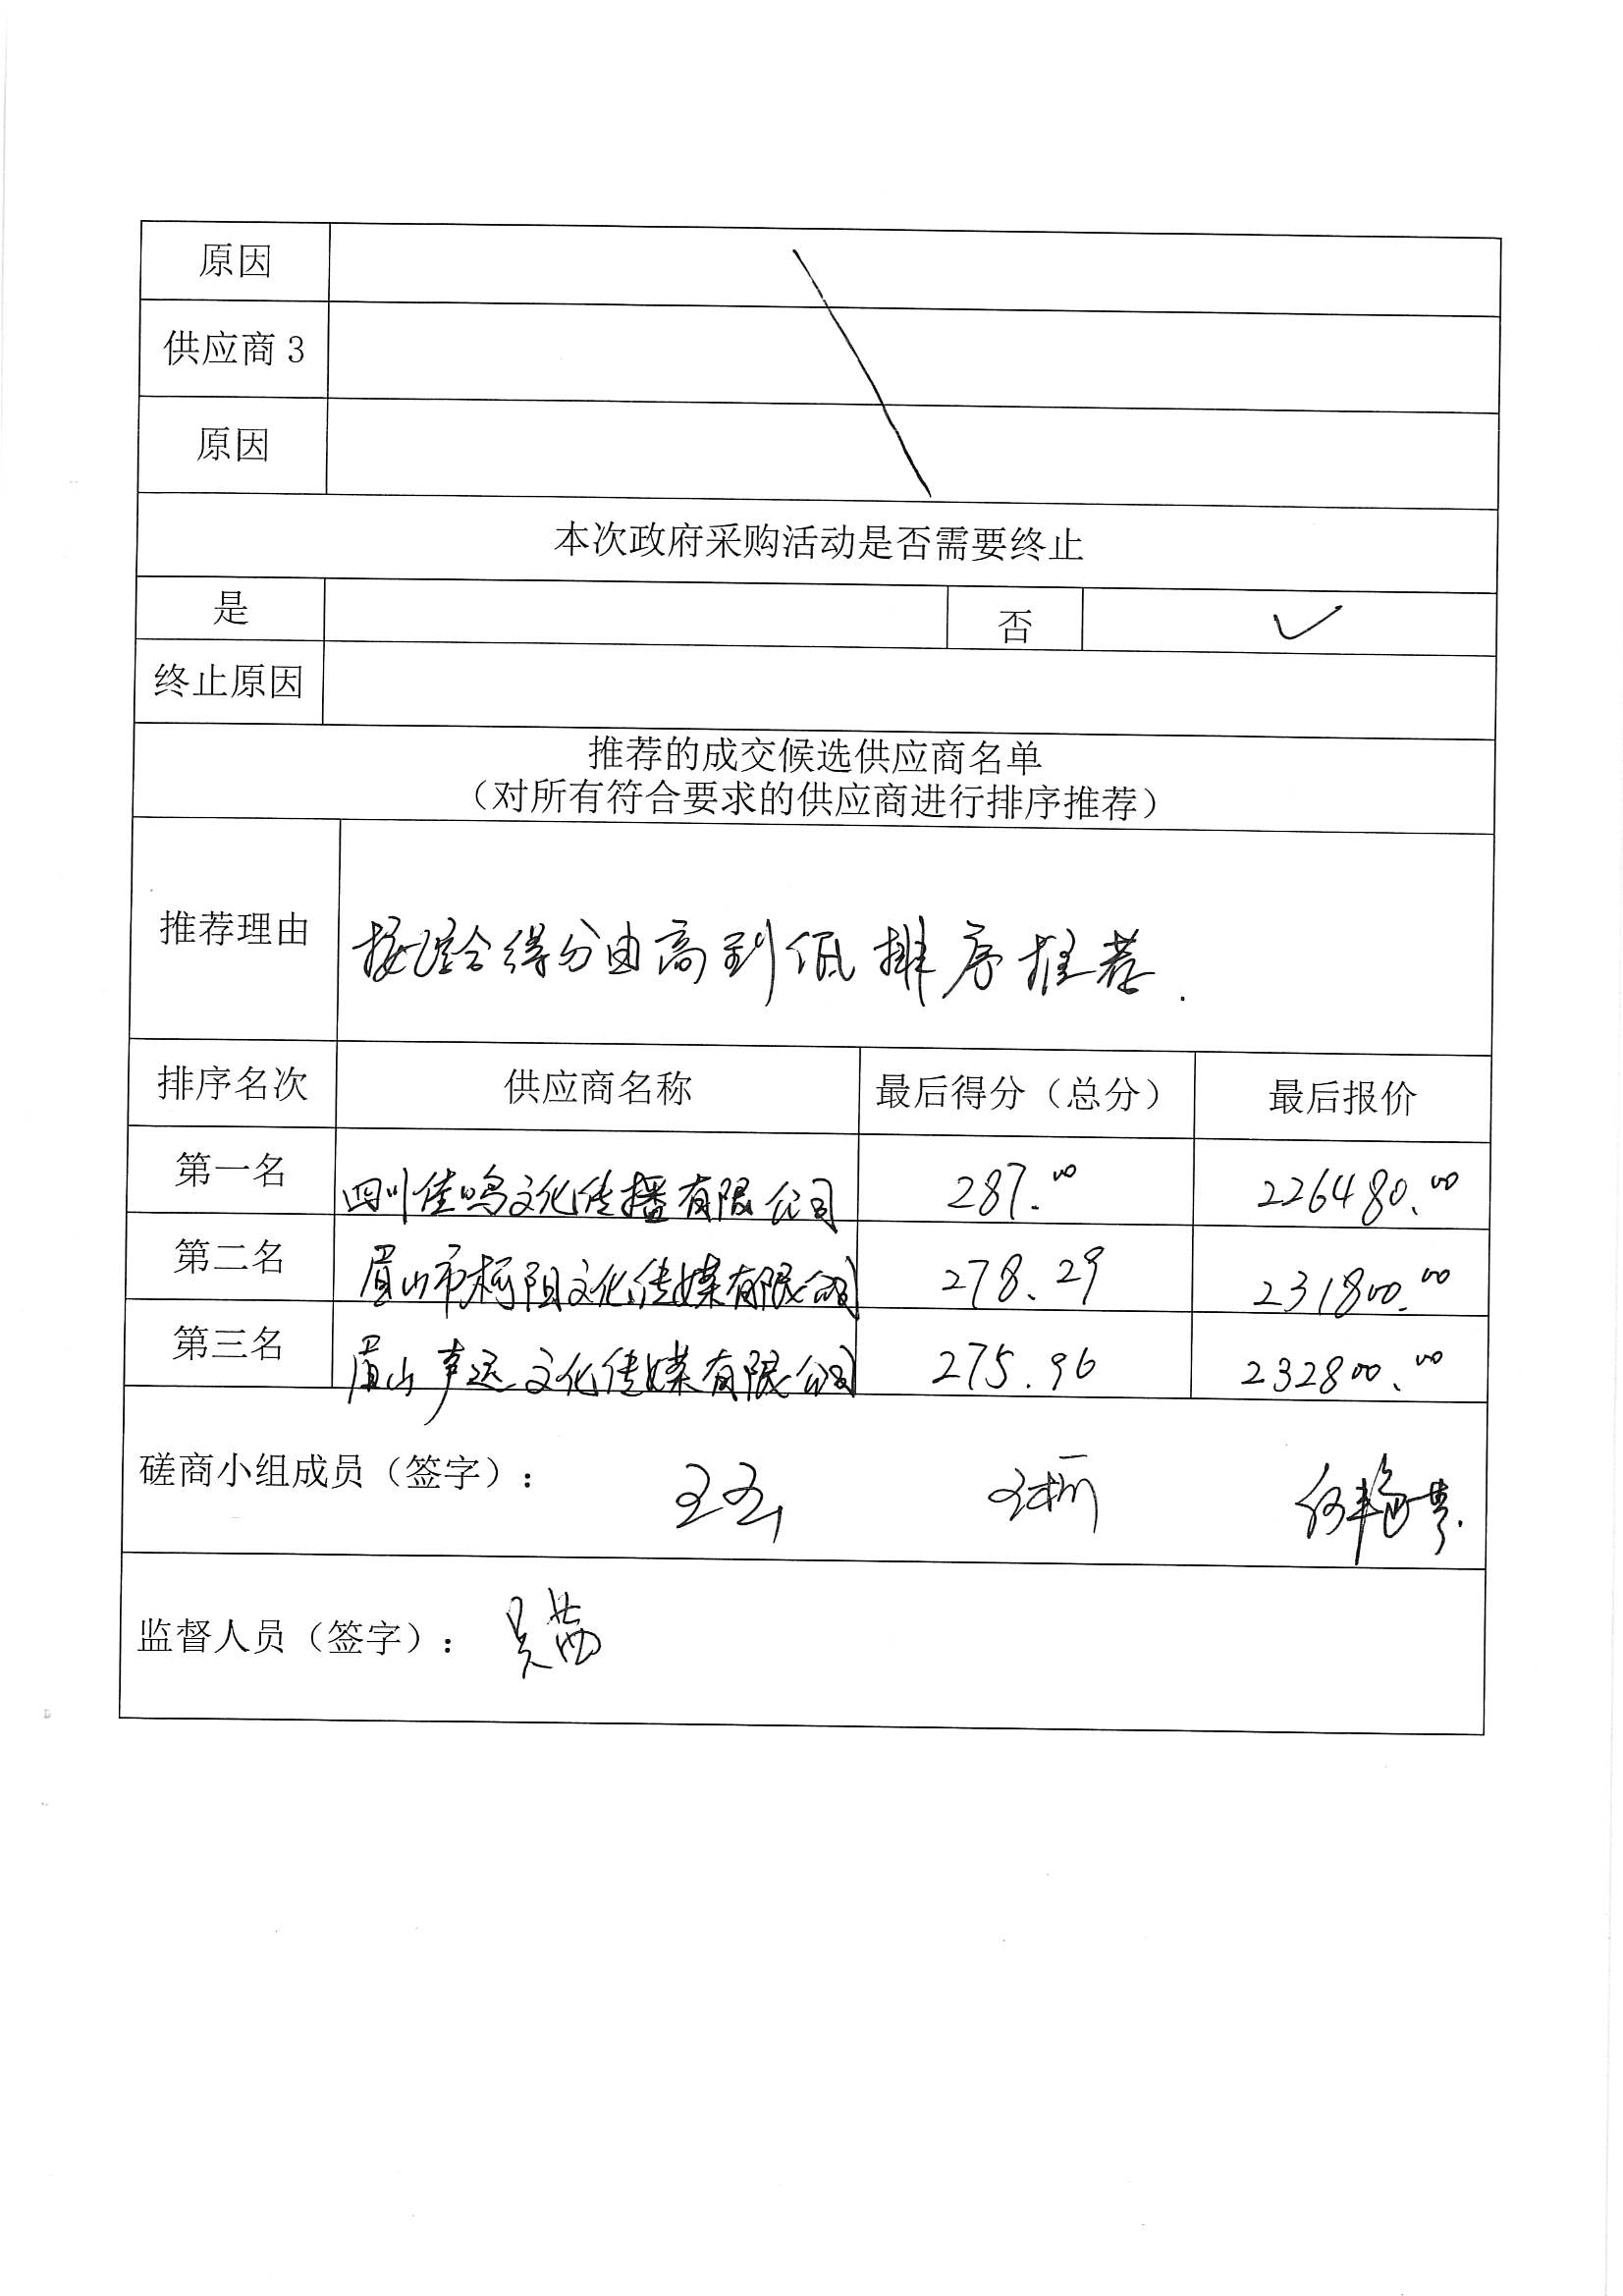 原因
供应商 3
原因
本次政府采购活动是否需要终止
是 否 ✓
终止原因
推荐的成交候选供应商名单
（对所有符合要求的供应商进行排序推荐）
推荐理由 按综合得分由高到低排序推荐.
排序名次 供应商名称 最后得分（总分） 最后报价
第一名 四川佳鸣文化传播有限公司 287.00 226480.00
第二名 眉山市柯阳文化传媒有限公司 278.29 231800.00
第三名 眉山声远文化传媒有限公司 275.96 232800.00
磋商小组成员（签字）：
监督人员（签字）：吴茜